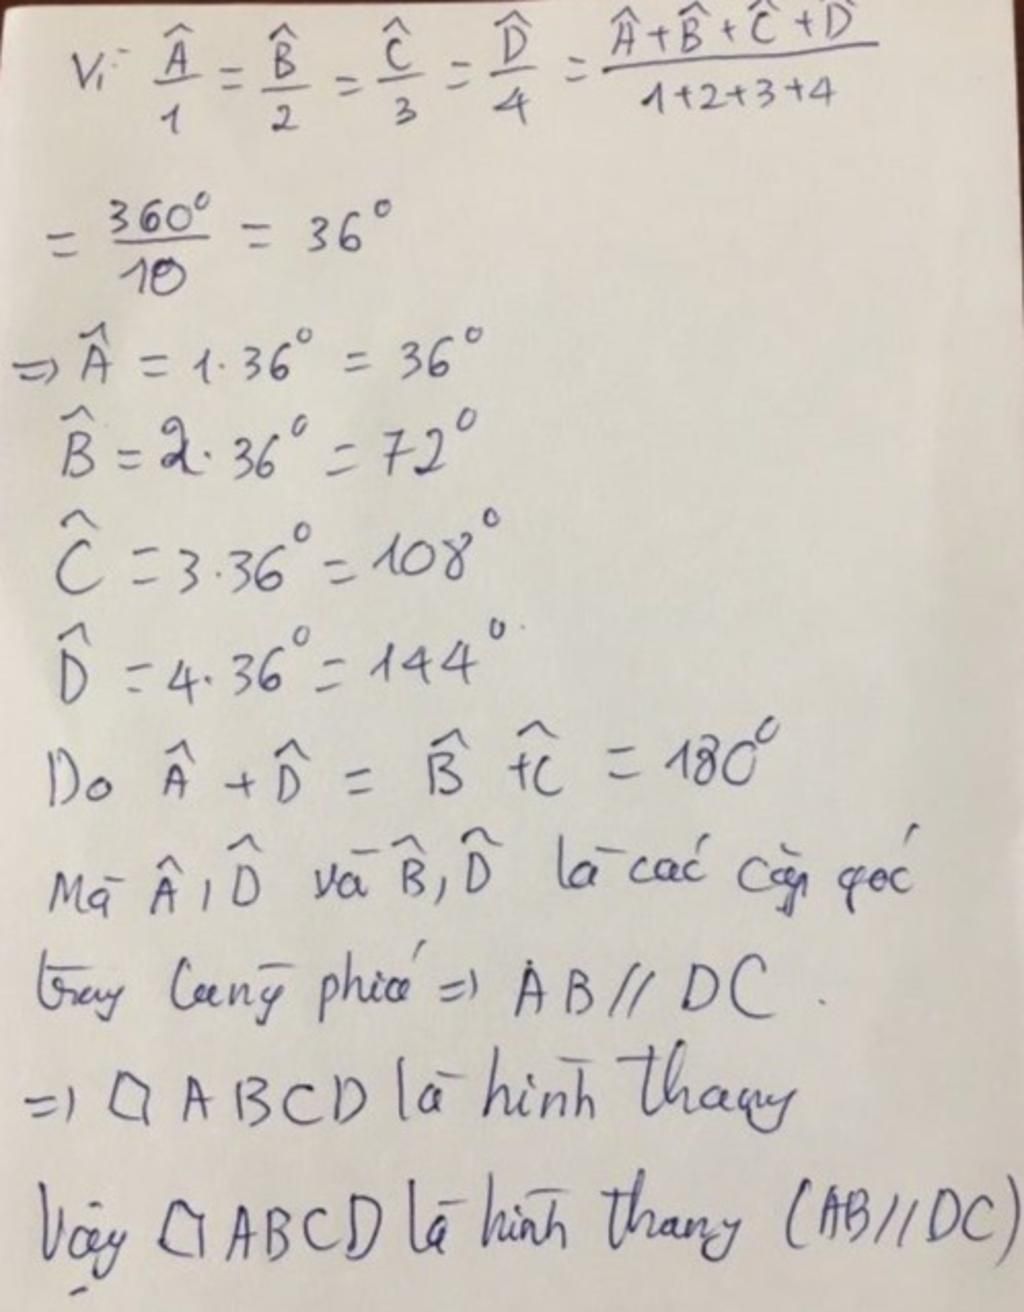 Vì Â/1 = B̂/2 = Ĉ/3 = D̂/4 = (Â+B̂+Ĉ+D̂)/(1+2+3+4)
= 360°/10 = 36°
=> Â = 1.36° = 36°
B̂ = 2.36° = 72°
Ĉ = 3.36° = 108°
D̂ = 4.36° = 144°
Do Â + D̂ = B̂ + Ĉ = 180°
Mà Â, D̂ và B̂, D̂ là các cặp góc
trong cùng phía => AB // DC.
=> □ ABCD là hình thang
Vậy □ ABCD là hình thang (AB//DC)